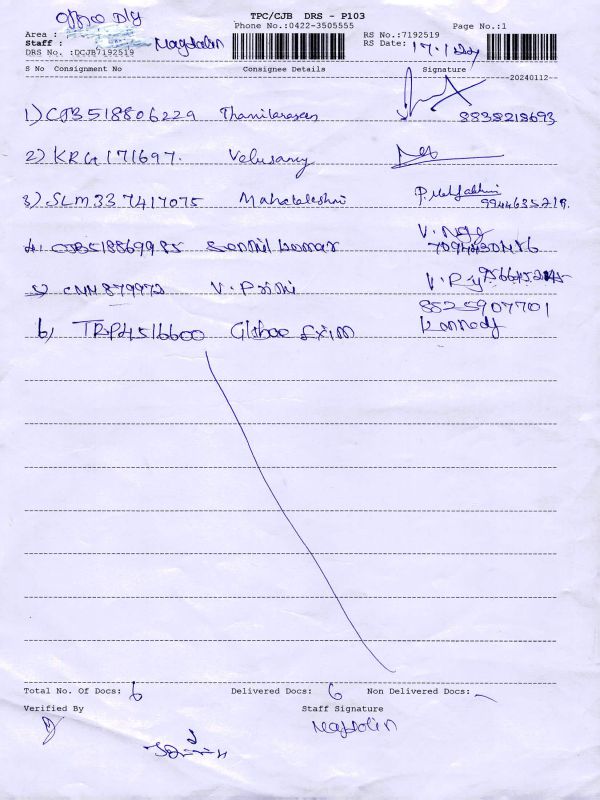 Office Dly
TPC/CJB DRS - P103
Phone No.:0422-3505555
Page No.:1
Area :
Staff : Magdalin
DRS No. :DCJB7192519
RS No.:7192519
RS Date: 17.1.24
S No Consignment No Consignee Details Signature
20240112
1) CJB518806229 Thamilarasan 8838218693
2) KRG171697. Velusamy
3) SLM337417075 Mahalakshmi P. Mahalakshmi
9944635219.
4. CJB518869985 Senthil kumar V.
5) CNN879972 V.P
8825907701
6) TRP4516600 Global Exim Kannedy
Total No. Of Docs: 6 Delivered Docs: 6 Non Delivered Docs: -
Verified By Staff Signature
Magdalin